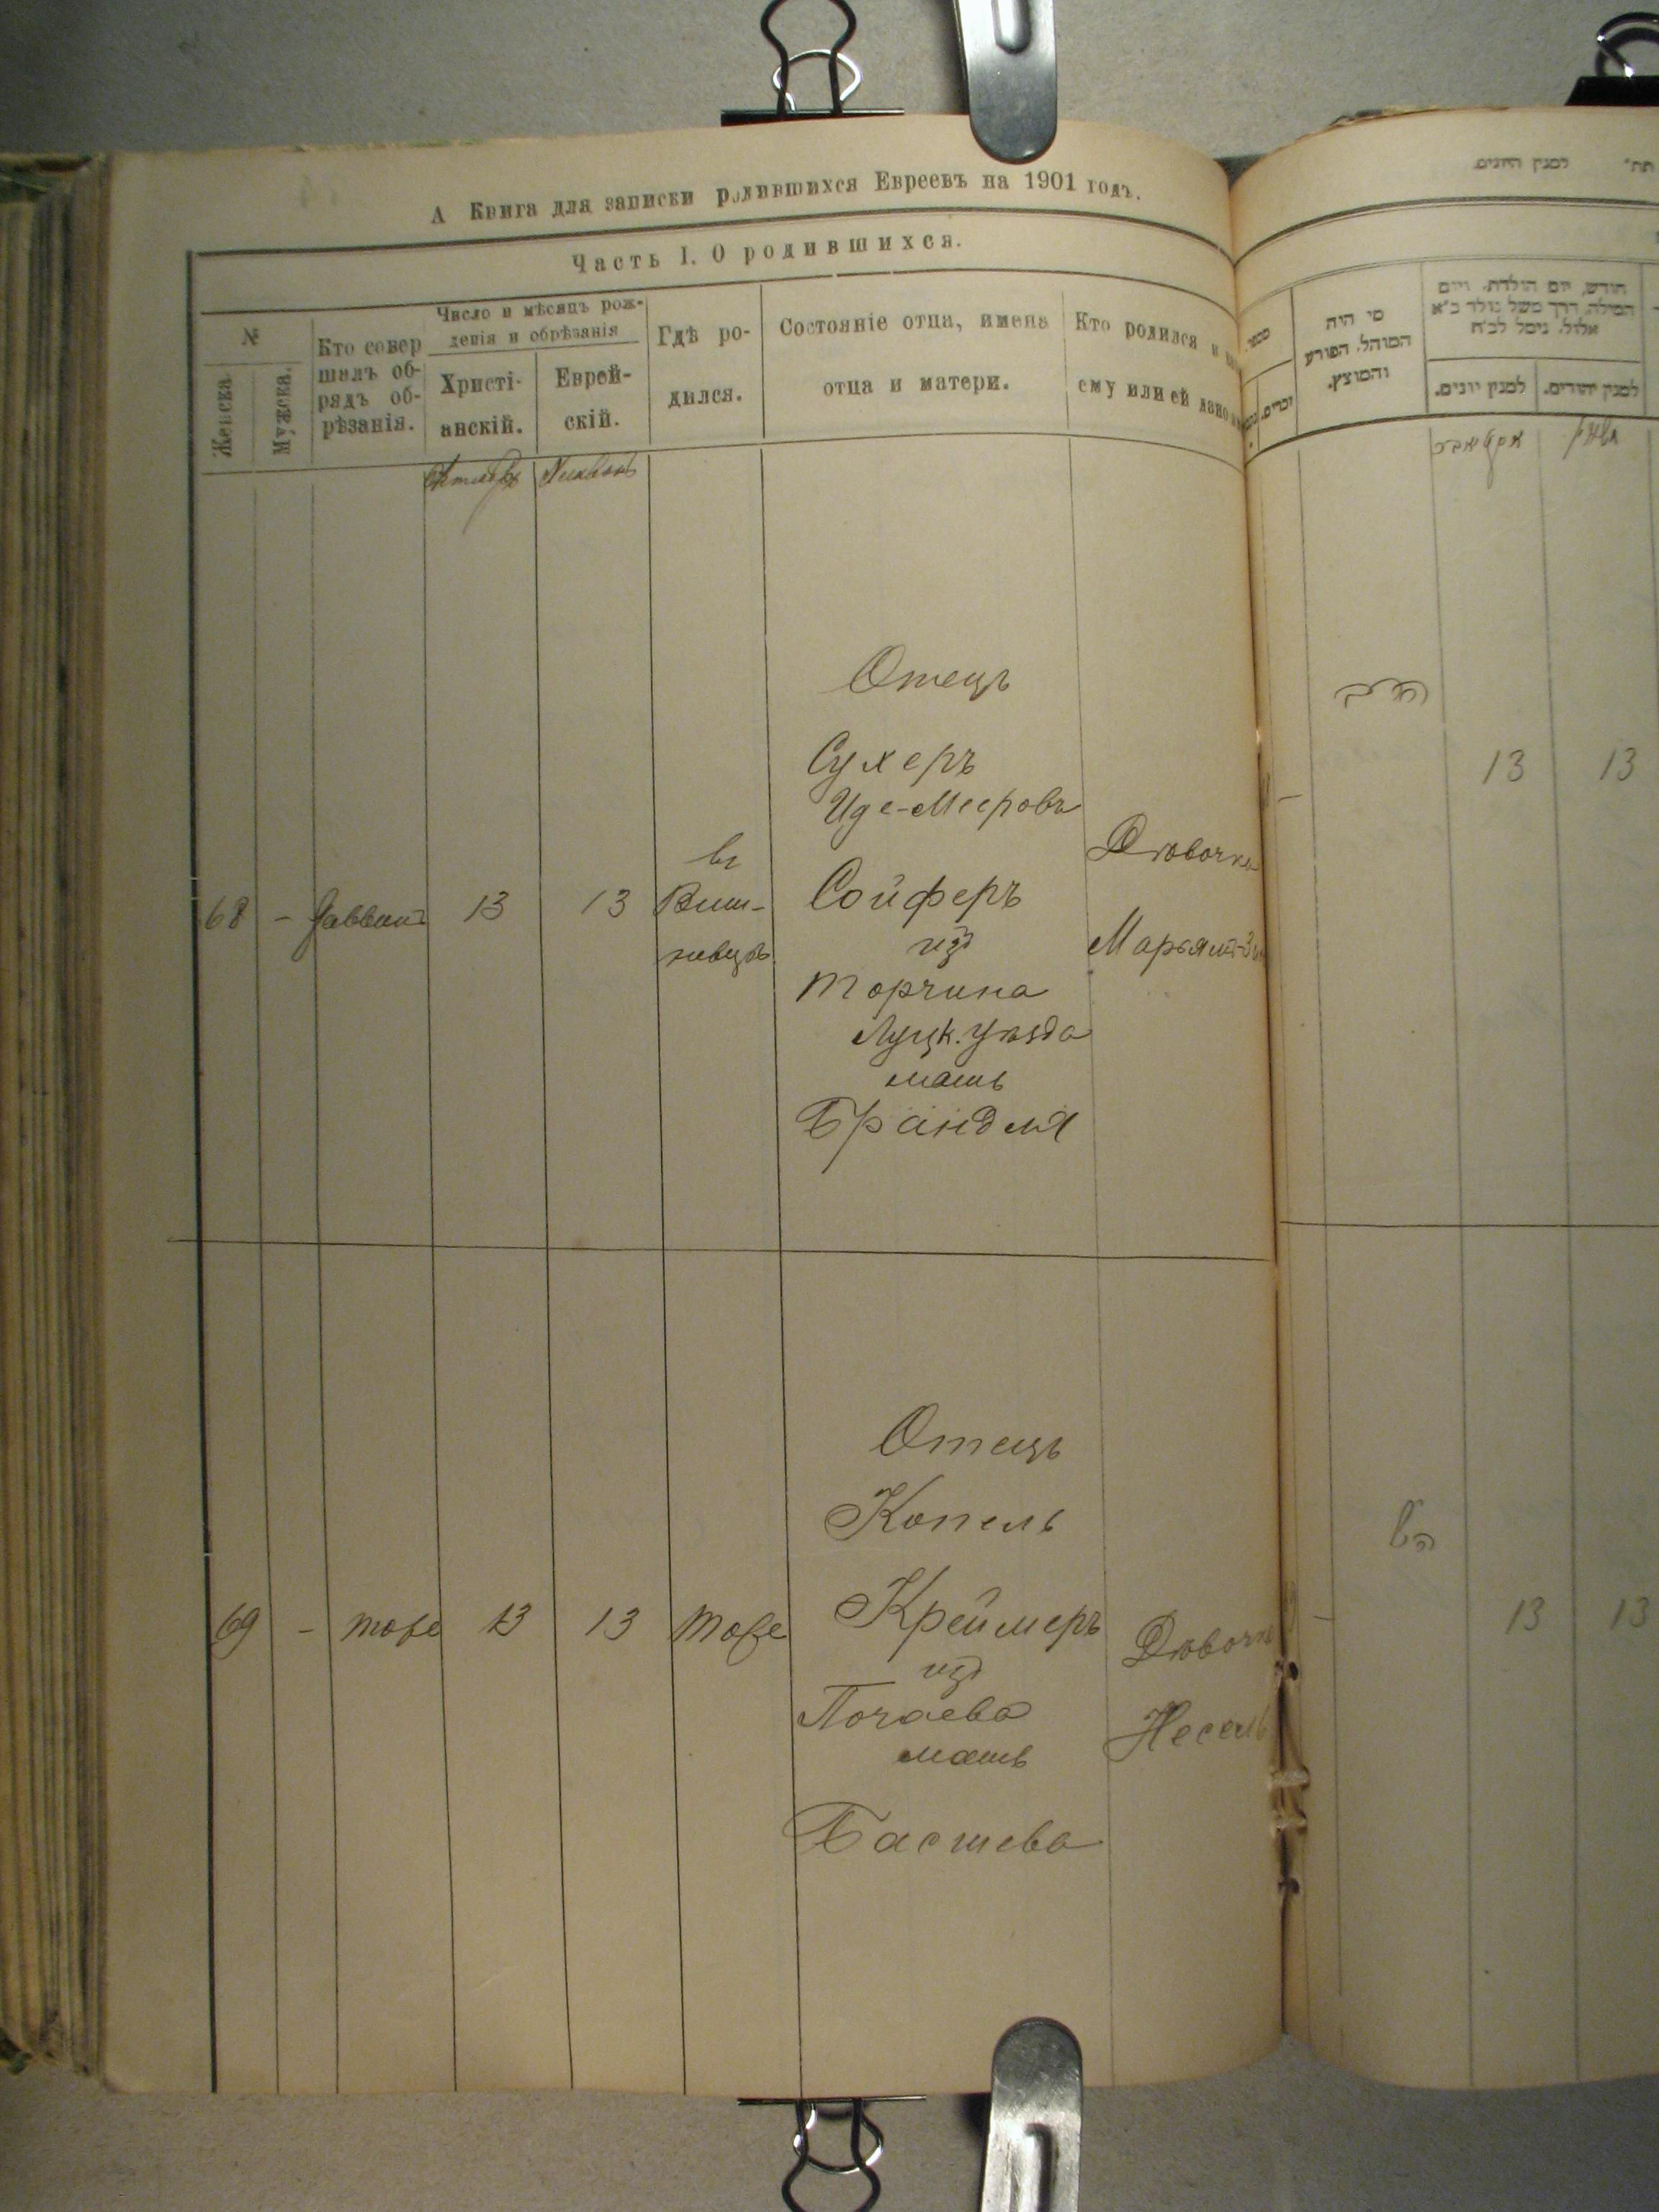 А Книга для записки родившихся Евреевъ на 1901 годъ.
Часть I. О родившихся.
№
Женска
Мужска.
Кто совер
шалъ об-
рядъ об-
рѣзанія.
Число и мѣсяцъ рож-
денія и обрѣзанія
Христі-
анскій.
Еврей-
скій.
Гдѣ ро-
дился.
Состояніе отца, имена
отца и матери.
Кто родился и
ему или ей дано
Октябрь
68
-
Раввинъ
13
13
въ
Виш-
невцѣ
Отецъ
Сухеръ
Иде-Мееровъ
Сойферъ
изъ
Торчина
Луцк. Уѣзда
мать
Брандля
Дѣвочка
Марьямъ-
69
-
тоже
13
13
тоже
Отецъ
Копель
Креймеръ
изъ
Почаева
мать
Басшева
Дѣвочка
Несель
למנין היונים
מי היה
המוהל, הפורע
והמוצץ.
חודש, יום הולדת, ויום
המילה, דרך משל נולד כ״א
אלול, נימל לכ״ח
למנין יונים.
למנין יהודים.
זכרים.
אקטאבר
חשון
13
13
-
13
13
-